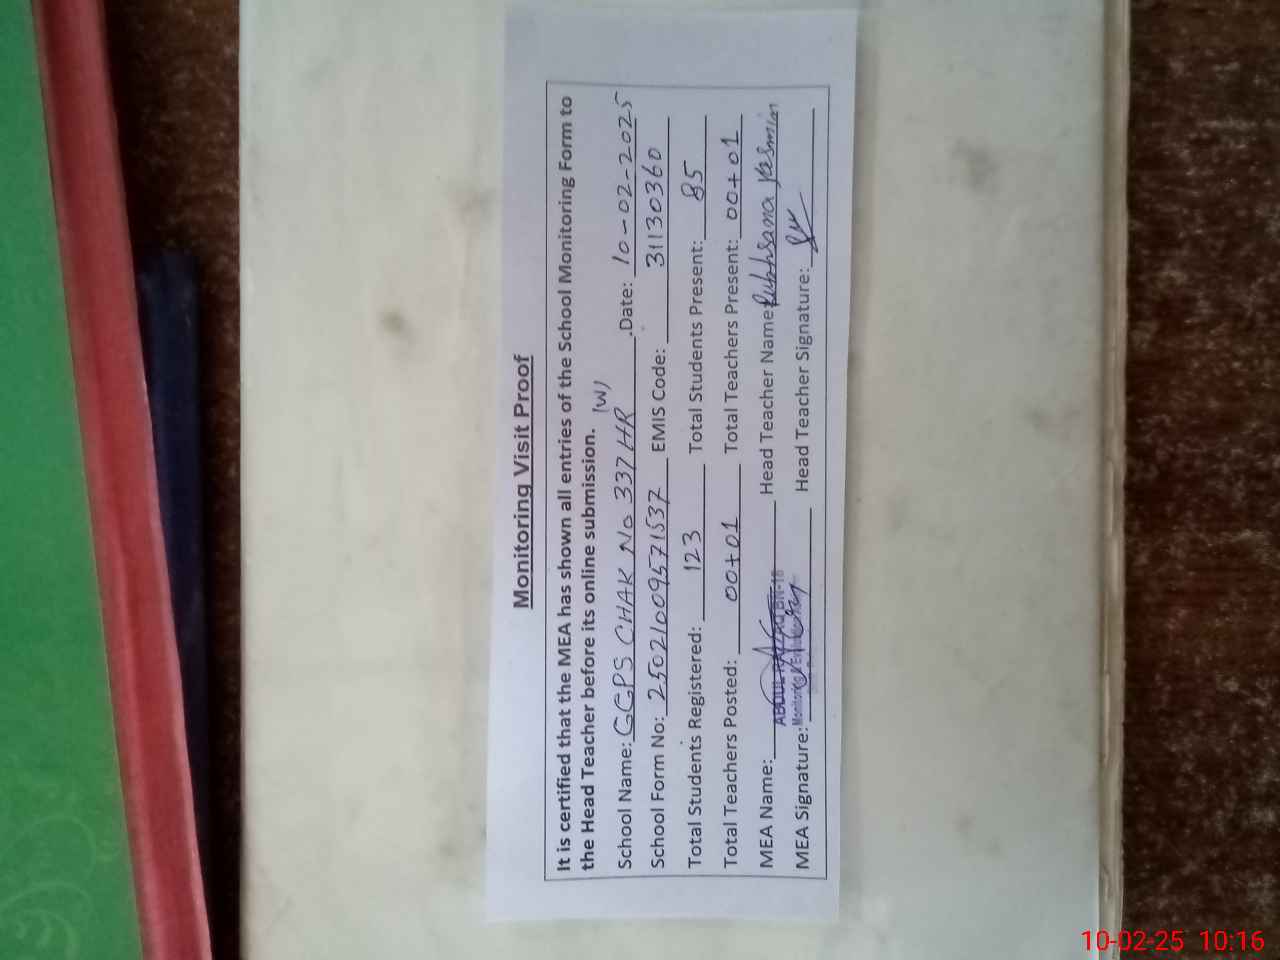 Monitoring Visit Proof
It is certified that the MEA has shown all entries of the School Monitoring Form to
the Head Teacher before its online submission.
School Name: GGPS CHAK No 337 HR (W) .Date: 10-02-2025
School Form No: 25021009571537 EMIS Code: 31130360
Total Students Registered: 123 Total Students Present: 85
Total Teachers Posted: 00+01 Total Teachers Present: 00+01
MEA Name: ABDUL Head Teacher Name: Rukhsana Yasmin
MEA Signature: Monitoring & Head Teacher Signature:
10-02-25 10:16